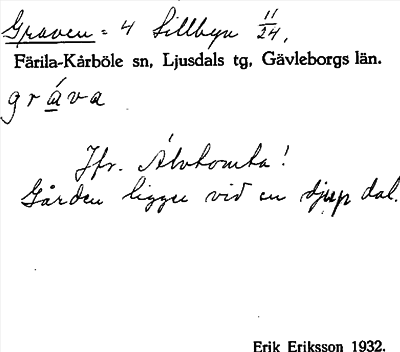 Graven = 4 Sillbyn 11/24,
Färila-Kårböle sn, Ljusdals tg, Gävleborgs län.
gráva
Jfr. Älvkomba!
Gården ligger vid en djup dal.
Erik Eriksson 1932.